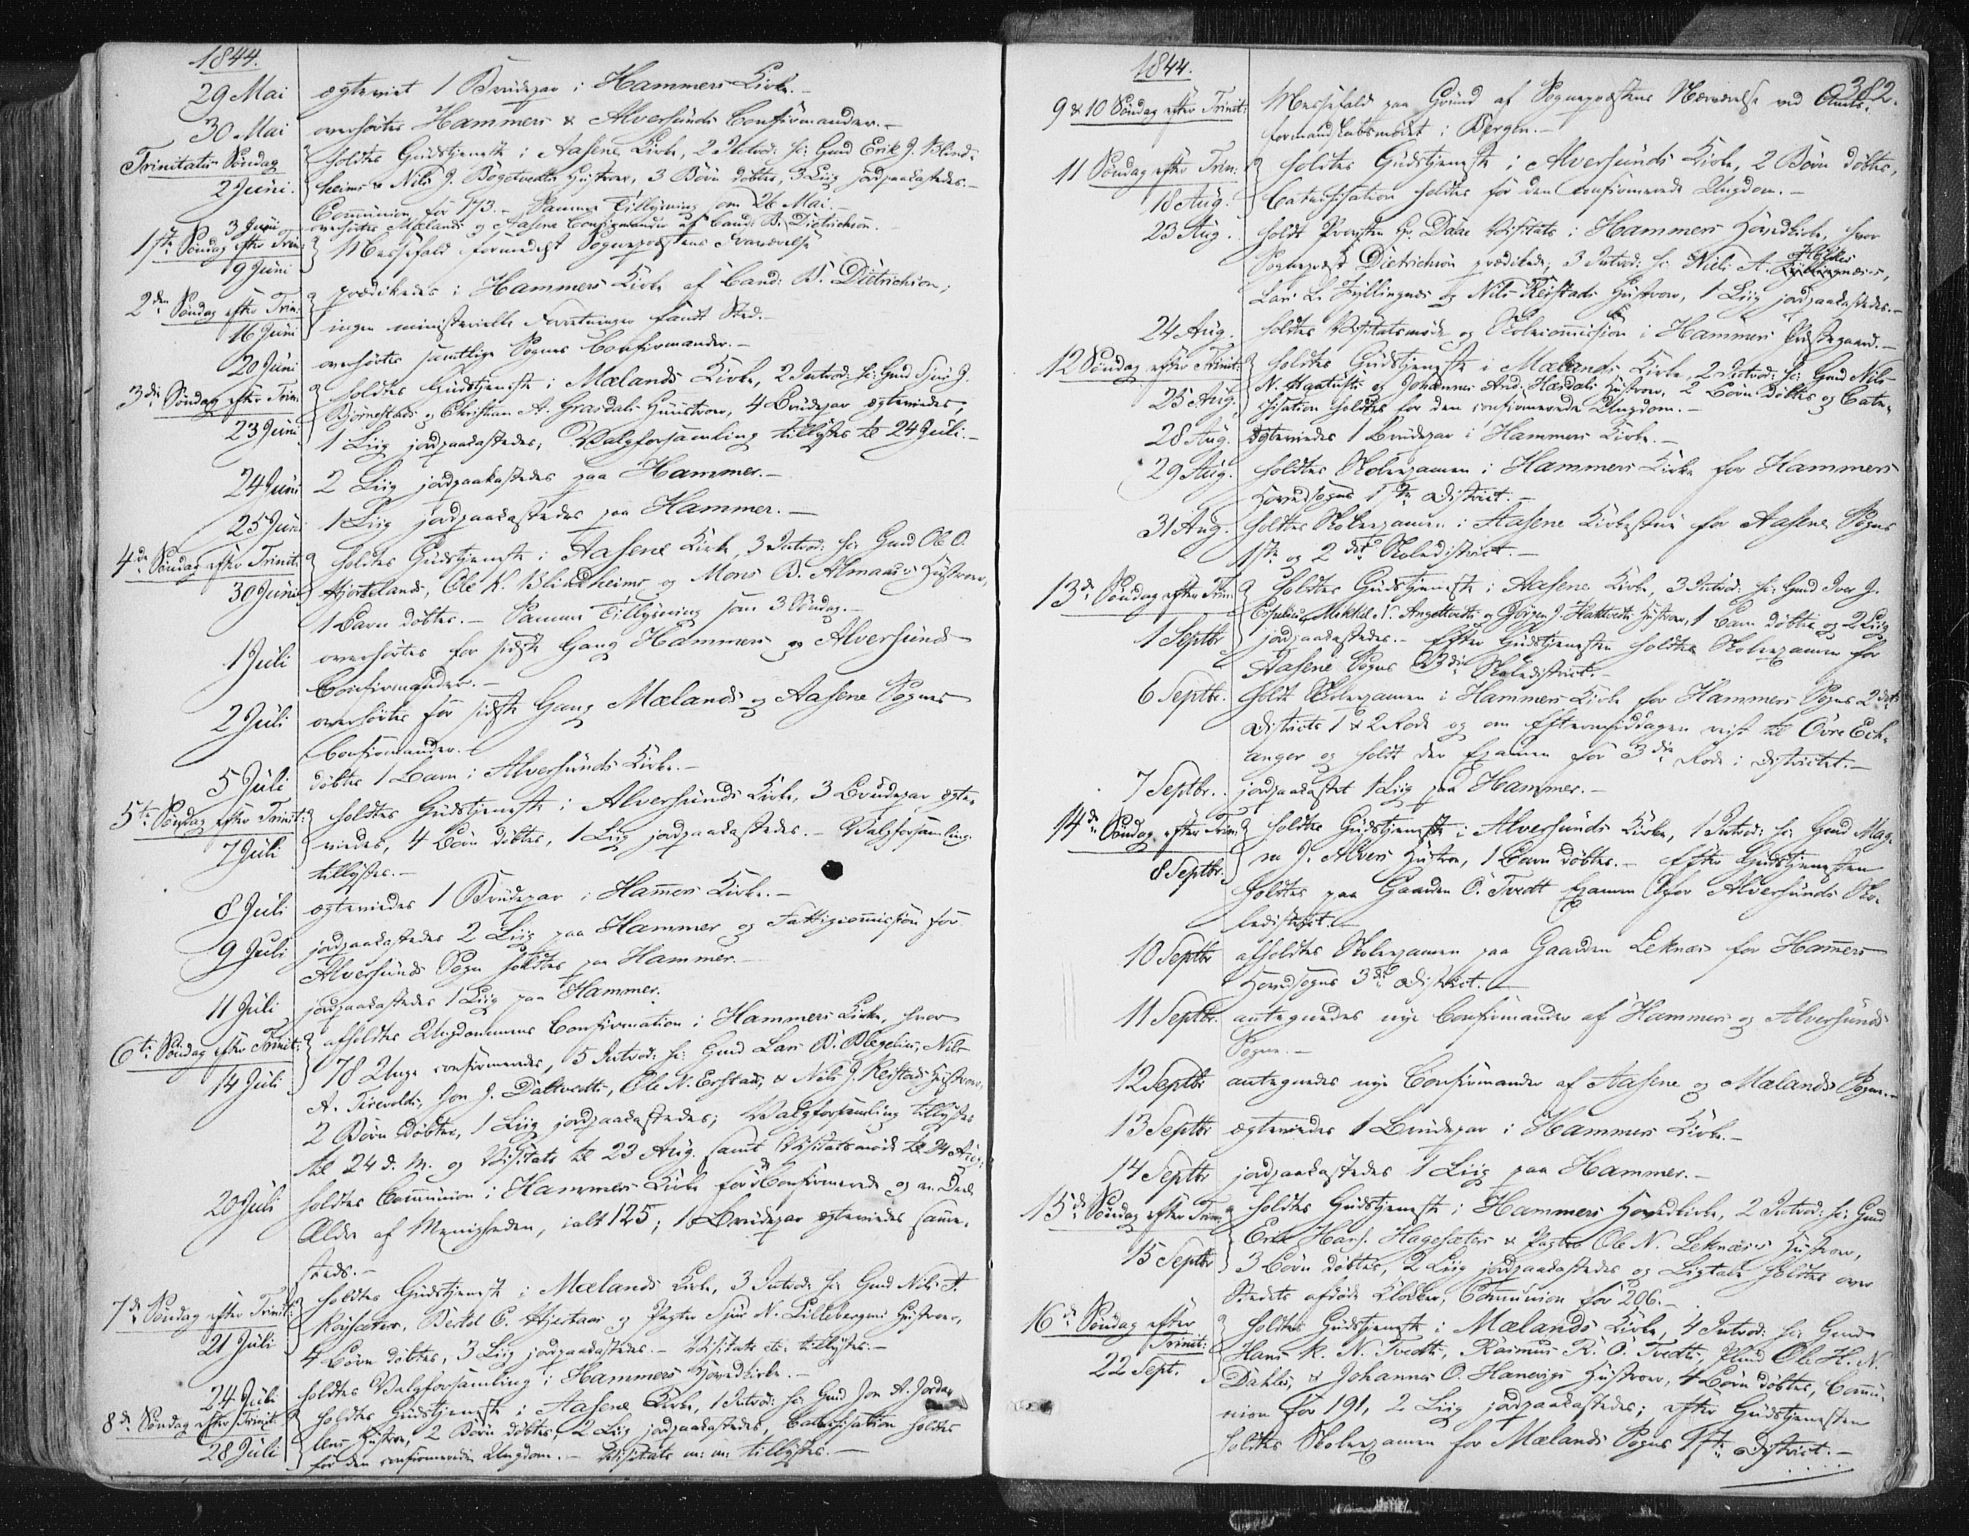 1844.
29 Mai ægteviet 1 Brudepar i Hammers Kirke.-
30 Mai overhørtes Hammers & Alversunds Confirmander.-
Trinitatis Søndag holdtes Gudstjeneste i Aasene Kirke, 2 Introd: hs: Gmd Erik J. Blind-
2 Juni. heims & Nils J. Bøgetvedts Hustroer, 3 Børn døbtes, 3 Liig jordpaakastedes.-
Communion for 173.- Samme Tillysning som 26 Mai.-
3 Juni overhørtes Mælands og Aasene Confirmander af Cand: B. Dietrichson.
1ste Søndag efter Trin: Messefald formedelst Sognepræstens Fraværelse
9 Juni
2den Søndag efter Trin: prædikedes i Hammers Kirke af Cand: B. Dietrichson,
16 Juni ingen ministerielle Forretninger fandt Sted.-
20 Juni overhørtes samtlige Sognes Confirmander.-
3die Søndag efter Trin: holdtes Gudstjeneste i Mælands Kirke, 2 Introd: hs: Gmd Sjur J.
Bjørnestads og Christian A. Grasdals Huustroer, 4 Brudepar ægteviedes,
23 Juni 1 Liig jordpaakastedes, Valgforsamling tillystes til 24 Juli.-
24 Juni 2 Liig jordpaakastedes paa Hammer.-
25 Juni 1 Liig jordpaakastedes paa Hammer.-
4de Søndag efter Trinit: holdtes Gudstjeneste i Aasene Kirke, 3 Introd: hs: Gmd Ole O.
30 Juni Hjortelands, Ole K. Blindheims og Mons B. Almaas's Hustroer,
1 Barn døbtes.- Samme Tillysning som 3 Søndag.-
1 Juli overhørtes for sidste Gang Hammers og Alversunds
Confirmander.-
2 Juli overhørtes for sidste Gang Mælands og Aasene Sognes
Confirmander.-
5 Juli døbtes 1 Barn i Alversunds Kirke.-
5te Søndag efter Trinit: holdtes Gudstjeneste i Alversunds Kirke, 3 Brudepar ægte-
7 Juli viedes, 4 Børn døbtes, 1 Liig jordpaakastedes.- Valgforsamling
tillystes.-
8 Juli ægteviedes 1 Brudepar i Hamers Kirke.-
9 Juli jordpaakastedes 2 Liig paa Hammer og Fattigcommission for
Alversunds Sogn holdtes paa Hammer.-
11 Juli jordpaakastedes 1 Liig paa Hammer.
6te Søndag efter Trinit: afholdtes Ungdommens Confirmation i Hammers Kirke, hvor
14 Juli 78 Unge confirmeredes, 5 Introd: hs: Gmd Lars B. Nils
A. Jon J. Ole N. & Nils J. Reistads Hustroer,
2 Børn døbtes, 1 Liig jordpaakastedes; Valgforsamling tillystes
til 24 d. M. og Visitats til 23 Aug. samt Visitatsmøde til 24 Aug.
20 Juli holdtes Communion i Hammers Kirke for de Confirmerede og en Deel
Ældre af Menigheden, ialt 125; 1 Brudepar ægteviedes samme-
steds.-
7de Søndag efter Trinit: holdtes Gudstjeneste i Mælands Kirke, 3 Introd: hs: Gmd Nils A.
21 Juli Bertel C. og Pagter Sjur N. Lillebergens Hustroer,
4 Børn døbtes, 3 Liig jordpaakastedes.- Visitats etc: tillystes.-
24 Juli holdtes Valgforsamling i Hammers Hovedkirke.-
8de Søndag efter Trinit: holdtes Gudstjeneste i Aasene Kirke, 1 Introd: hs: Gmd Jon A. Jordal-
lens Hustroe, 2 Børn døbtes, 2 Liig jordpaakastedes, Catechisation holdtes
28 Juli for den confirmerede Ungdom.- Visitats m: m: tillystes.-
1844. 382.
9 & 10 Søndag efter Trinit: Messefald paa Grund af Sognepræstens Nærværelse ved Amts-
formandskabsmødet i Bergen.-
11 Søndag efter Trin: holdtes Gudstjeneste i Alversunds Kirke, 2 Børn døbtes,
18 Aug. Catechisation holdtes for den confirmerede Ungdom.-
23 Aug. holdt Provsten Hr. Daae Visitats i Hammers Hovedkirke, hvor
Sognepræst Dietrichson prædikede; 3 Introd: hs: Niels A.
Lars L. Fyllingnes og Nils Reistads Hustroer, 1 Liig jordpaakastedes.-
24 Aug. holdtes Visitatsmøde og Skolecommission i Hammers Præstegaard.-
12 Søndag efter Trinit: holdtes Gudstjeneste i Mælands Kirke, 2 Introd: hs: Gmd Nils
25 Aug. N. og Johannes And. Hosdals Hustroer, 2 Børn døbtes og Cate-
chisation holdtes for den confirmerede Ungdom.-
28 Aug. ægteviedes 1 Brudepar i Hammers Kirke.-
29 Aug. holdtes Skoleexamen i Hammers Kirke for Hammers
Hovedsogns 1ste District.-
31 Aug. holdtes Skoleexamen i Aasene Kirkestue for Aasene Sogns
1ste og 2det Skoledistrict.-
13de Søndag efter Trin: holdtes Gudstjeneste i Aasene Kirke, 3 Introd: hs: Gmd Iver J.
Mikkel N. og Jørgen J. Hustroer, 1 Barn døbtes og 2 Liig
1 Septbr. jordpaakastedes.- Efter Gudstjenesten holdtes Skoleexamen for
Aasene Sogns 3die Skoledistrict.-
6 Septbr. holdt Skoleexamen i Hammers Kirke for Hammers Sogns 2det
Districts 1 & 2 Rode og om Eftermiddagen reist til Øvre Eik-
anger og holdt der Examen for 3die Rode i Districtet.-
7 Septbr. jordpaakastet 1 Liig paa Hammer.-
14de Søndag efter Trin: holdtes Gudstjeneste i Alversunds Kirke, 1 Introd: hs: Gmd Mag-
8 Septbr. ne J. Alvers Hustroe, 1 Barn døbtes.- Efter Gudstjenesten
holdtes paa Gaarden Ø. Tvedt Examen for Alversunds Sko-
ledistrict.-
10 Septbr afholdtes Skoleexamen paa Gaarden Leknæs for Hamers
Hovedsogns 3die District.-
11 Septbr. antegnedes nye Confirmander af Hammers og Alversunds
Sogne.-
12 Septbr antegnedes nye Confirmander af Aasene og Mælands Sogne.-
13 Septbr ægteviedes 1 Brudepar i Hammers Kirke.-
14 Septbr jordpaakastedes 1 Liig paa Hammer.-
15de Søndag efter Trin: holdtes Gudstjeneste i Hammers Hovedkirke, 2 Introd: hs: Gmd
Erik Hans. Hagesæters & Pagter Ole N. Leknæs's Hustroer,
15 Septbr 3 Børn døbtes, 2 Liig jordpaakastedes og Ligtale holdtes over
Stedets afdøde Klokker, Communion for 206.-
16de Søndag efter holdtes Gudstjeneste i Mælands Kirke, 4 Introd: hs: Gmd
Trinit: Hans K. N. Tvedts, Rasmus R. Ø. Tvedts, Ole H. N.
22 Sept. Dahles, & Johannes O. Hanevigs Hustroer, 4 Børn døbtes, Commu-
nion for 191, 2 Liig jordpaakastedes; efter Gudstjenesten
holdtes Skoleexamen for Mælands Sogns 1ste District.-